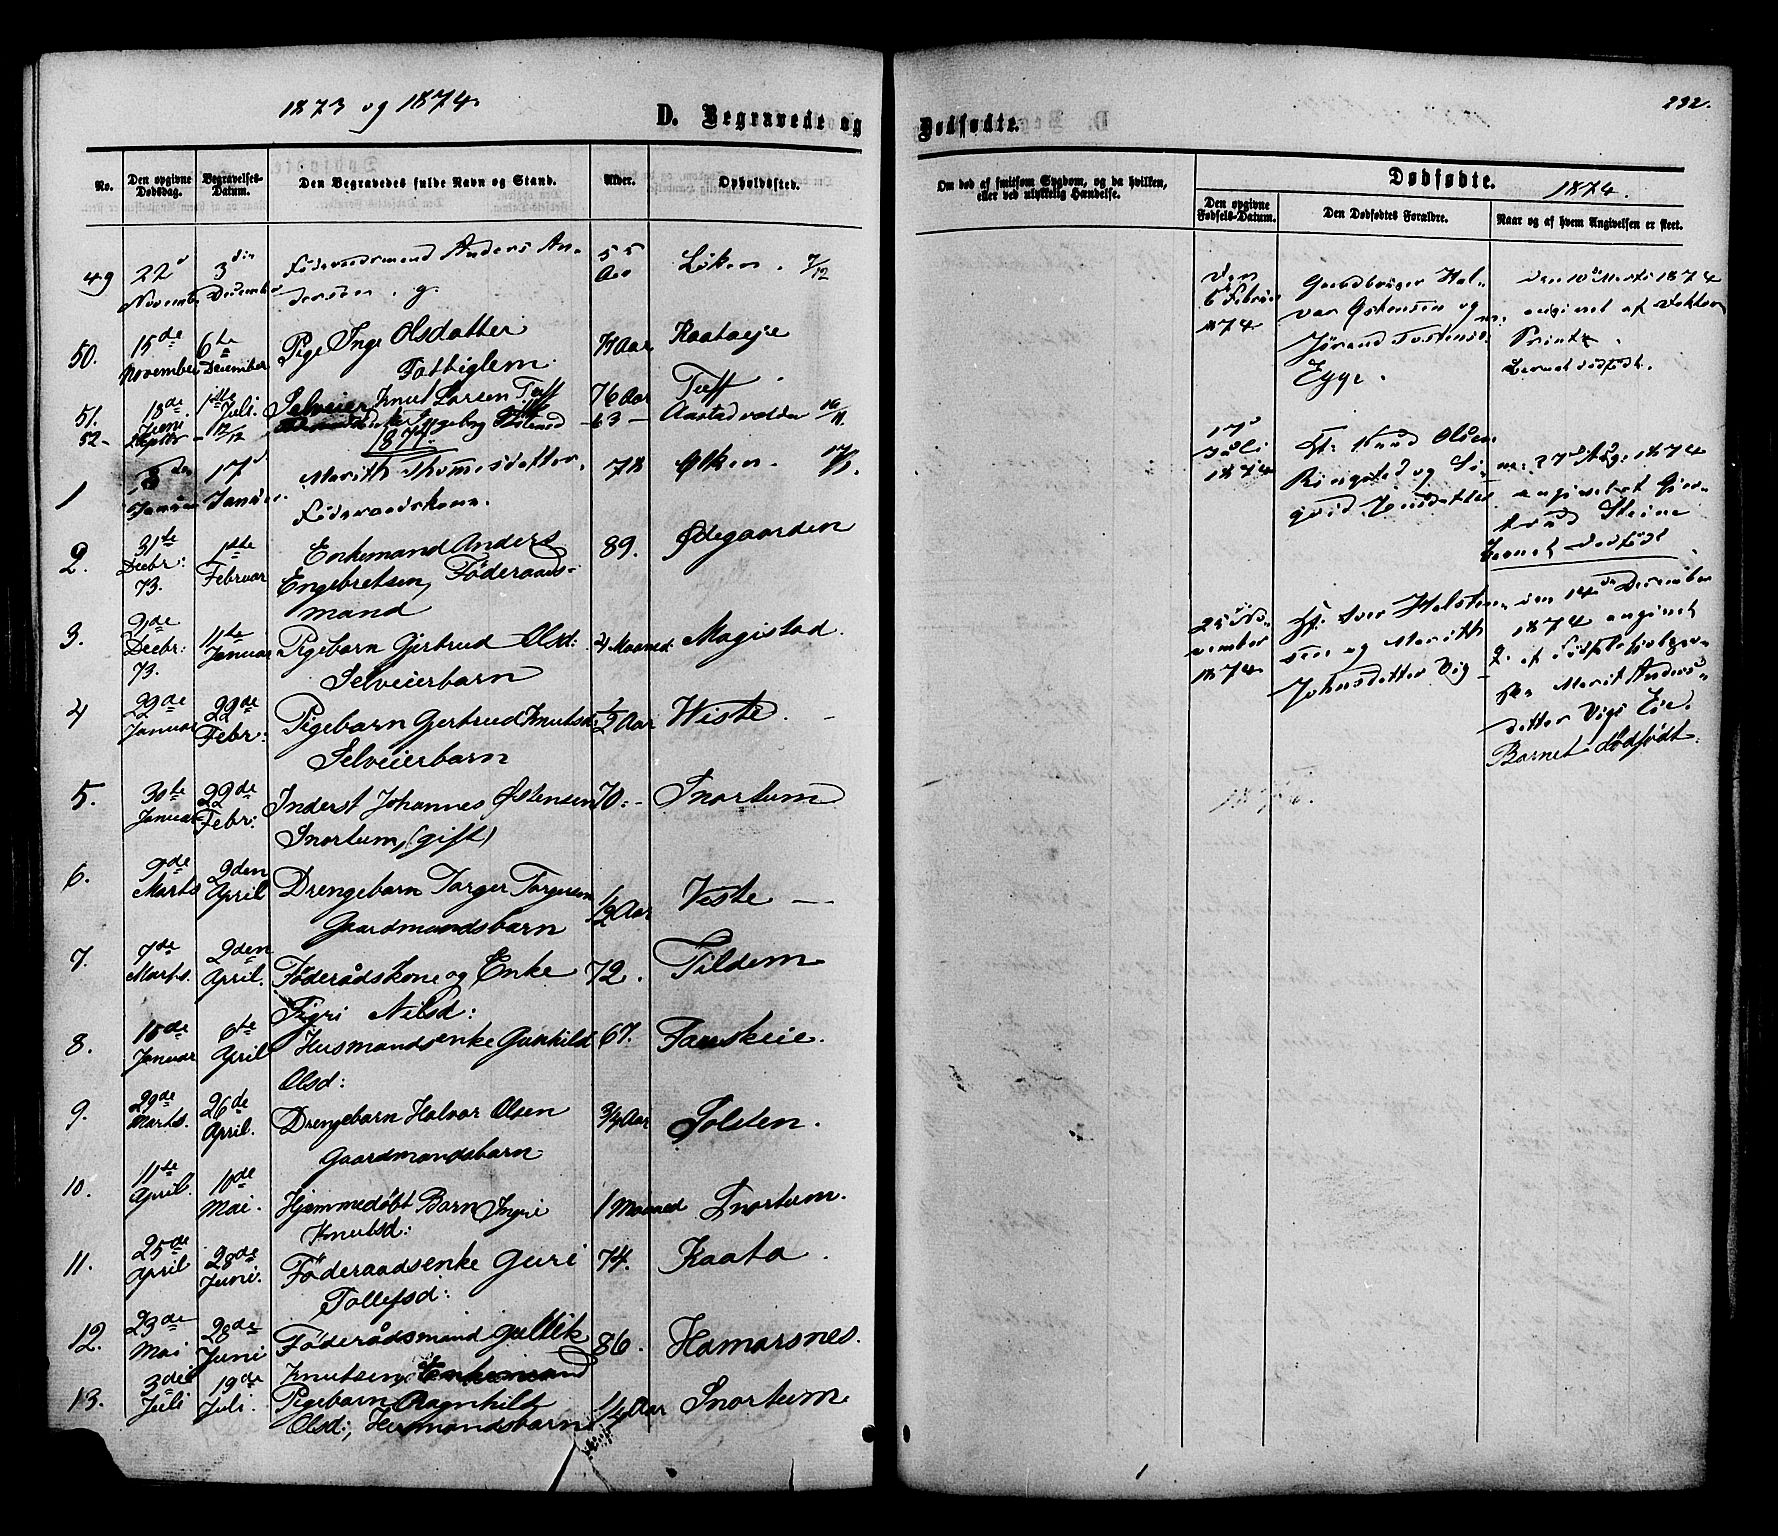 1873 og 1874.
D. Begravede og
Dødfødte.
232.
No.
Den opgivne Dødsdag.
Begravelses-Datum.
Den Begravedes fulde Navn og Stand.
Alder.
Opholdssted.
Om død af smitsom Sygdom, og da hvilken, eller ved ulykkelig Hændelse.
Dødfødte.
1874.
Den opgivne Fødsels-Datum.
Den Dødfødtes Forældre.
Naar og af hvem Angivelsen er skeet.
49 22 November 3 December Føderaadsmand Anders An-
dersen . g. 55 Aar Løken . 7/12
50. 15de November 6te December Pige Inge Olsdatter
Fattiglem. Aar Kaataeje
51. 18de Juni 1ste Juli. Selveier Knut Larsen Tuff 76 Aar Tuff
52 - 12/12 Enke Ingeborg 63 -
1874.
1 8 Januar 17 Januar Marith Thomesdatter.
Føderaadskone. 78 Øken. 17/1
2. 31te Decbr: 73. 1ste Februar Enkemand Anders
Engebretsen, Føderaads-
mand 89. Ødegaarden
3. Decbr: 73. 11te Januar Pigebarn Gertrud Olsd:
Selveierbarn Maaned. Magistad.
4 22de Januar 22de Febr: Pigebarn Gertrud Knutsd:
Selveierbarn 1/2 Aar Wiste.
5. 30te Januar 22de Febr: Inderst Johannes Østensen
Snortum, (gift) 70. - Snortum
6. 9de Marts 2den April Drengebarn Torger Torgersen
Gaardmandsbarn 1/2 Aar Viste -
7. 7de Marts. 2den April. Føderådskone og Enke
Sigri Nilsd: 72. Tildem
8. 15de Januar 6te April Husmandsenke Gunhild
Olsd: 67. Fauskeie.
9. 29de Marts. 26de April. Drengebarn Halvor Olsen
Gaardmandsbarn 3/4 Aar Golsten.
10. 11te April. 10de Mai. Hjemmedøbt Barn Ingri
Knutsd: 1 Maaned Snortum.
11. 25de April 28de Juni. Føderaadsenke Guri
Tollefsd: 74. Kaata.
12. 23de Mai 28de Juni Føderådsmand Gullik
Knutsen, Enkemand 86. Hamarsnes.
13. 3die Juli 19de Juli. Pigebarn Ragnhild
Olsd:, Husmandsbarn 1/4 Aar Snortum
Den 6 Februar 1874 Gaardbruger Hal-
var Østensen og
Jørand Tostensd.
Eggje.
Den 10 Marts 1874
angivet af Doktor
Printz.
Barnet dødfødt.
17 Juli 1874 Knud Olsen
Ringstad og Si-
grid
27 Aug: 1874
angivet
Steine
Barnet dødfødt
25 November 1874 Iver Halsten-
sen og Marith
Johnsdatter Vig
den 14de December
1874 angivet
af
Marit Anders-
datter Vigs Eie.
Barnet dødfødt.